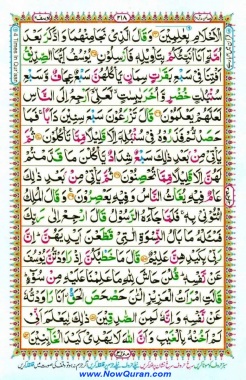 ۳۱۸
الْاَحْلَامِ بِعٰلِمِیْنَ وَ قَالَ الَّذِیْ نَجَا مِنْهُمَا وَ ادَّكَرَ بَعْدَ
اُمَّةٍ اَنَا اُنَبِّئُكُمْ بِتَاْوِیْلِهٖ فَاَرْسِلُوْنِ یُوْسُفُ اَیُّهَا الصِّدِّیْقُ
اَفْتِنَا فِیْ سَبْعِ بَقَرٰتٍ سِمَانٍ یَّاْكُلُهُنَّ سَبْعٌ عِجَافٌ وَّ سَبْعِ
سُنْۢبُلٰتٍ خُضْرٍ وَّ اُخَرَ یٰبِسٰتٍ لَّعَلِّیْۤ اَرْجِعُ اِلَی النَّاسِ
لَعَلَّهُمْ یَعْلَمُوْنَ قَالَ تَزْرَعُوْنَ سَبْعَ سِنِیْنَ دَاَبًا فَمَا
حَصَدْتُّمْ فَذَرُوْهُ فِیْ سُنْۢبُلِهٖۤ اِلَّا قَلِیْلًا مِّمَّا تَاْكُلُوْنَ ثُمَّ
یَاْتِیْ مِنْۢ بَعْدِ ذٰلِكَ سَبْعٌ شِدَادٌ یَّاْكُلْنَ مَا قَدَّمْتُمْ
لَهُنَّ اِلَّا قَلِیْلًا مِّمَّا تُحْصِنُوْنَ ثُمَّ یَاْتِیْ مِنْۢ بَعْدِ ذٰلِكَ
عَامٌ فِیْهِ یُغَاثُ النَّاسُ وَ فِیْهِ یَعْصِرُوْنَ وَ قَالَ الْمَلِكُ
ائْتُوْنِیْ بِهٖ فَلَمَّا جَآءَهُ الرَّسُوْلُ قَالَ ارْجِعْ اِلٰی رَبِّكَ
فَسْـَٔلْهُ مَا بَالُ النِّسْوَةِ الّٰتِیْ قَطَّعْنَ اَیْدِیَهُنَّ اِنَّ
رَبِّیْ بِكَیْدِهِنَّ عَلِیْمٌ قَالَ مَا خَطْبُكُنَّ اِذْ رَاوَدْتُّنَّ یُوْسُفَ
عَنْ نَّفْسِهٖ قُلْنَ حَاشَ لِلّٰهِ مَا عَلِمْنَا عَلَیْهِ مِنْ سُوْٓءٍ
قَالَتِ امْرَاَتُ الْعَزِیْزِ الْـٰٔنَ حَصْحَصَ الْحَقُّ اَنَا رَاوَدْتُّهٗ
عَنْ نَّفْسِهٖ وَ اِنَّهٗ لَمِنَ الصّٰدِقِیْنَ ذٰلِكَ لِیَعْلَمَ اَنِّیْ
لَمْ اَخُنْهُ بِالْغَیْبِ وَ اَنَّ اللّٰهَ لَا یَهْدِیْ كَیْدَ الْخَآئِنِیْنَ
www.NowQuran.com